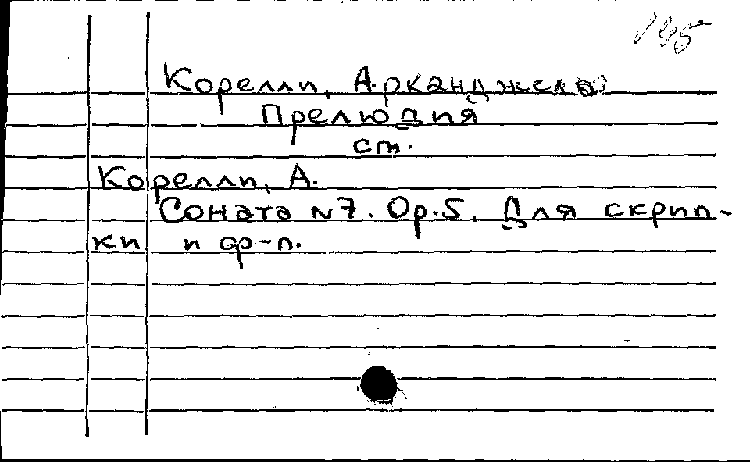 Корелли, Арканджело
Прелюдия
ст.
Корелли, А.
Соната N7. Op.5. Для скрип-
ки и ф-п.